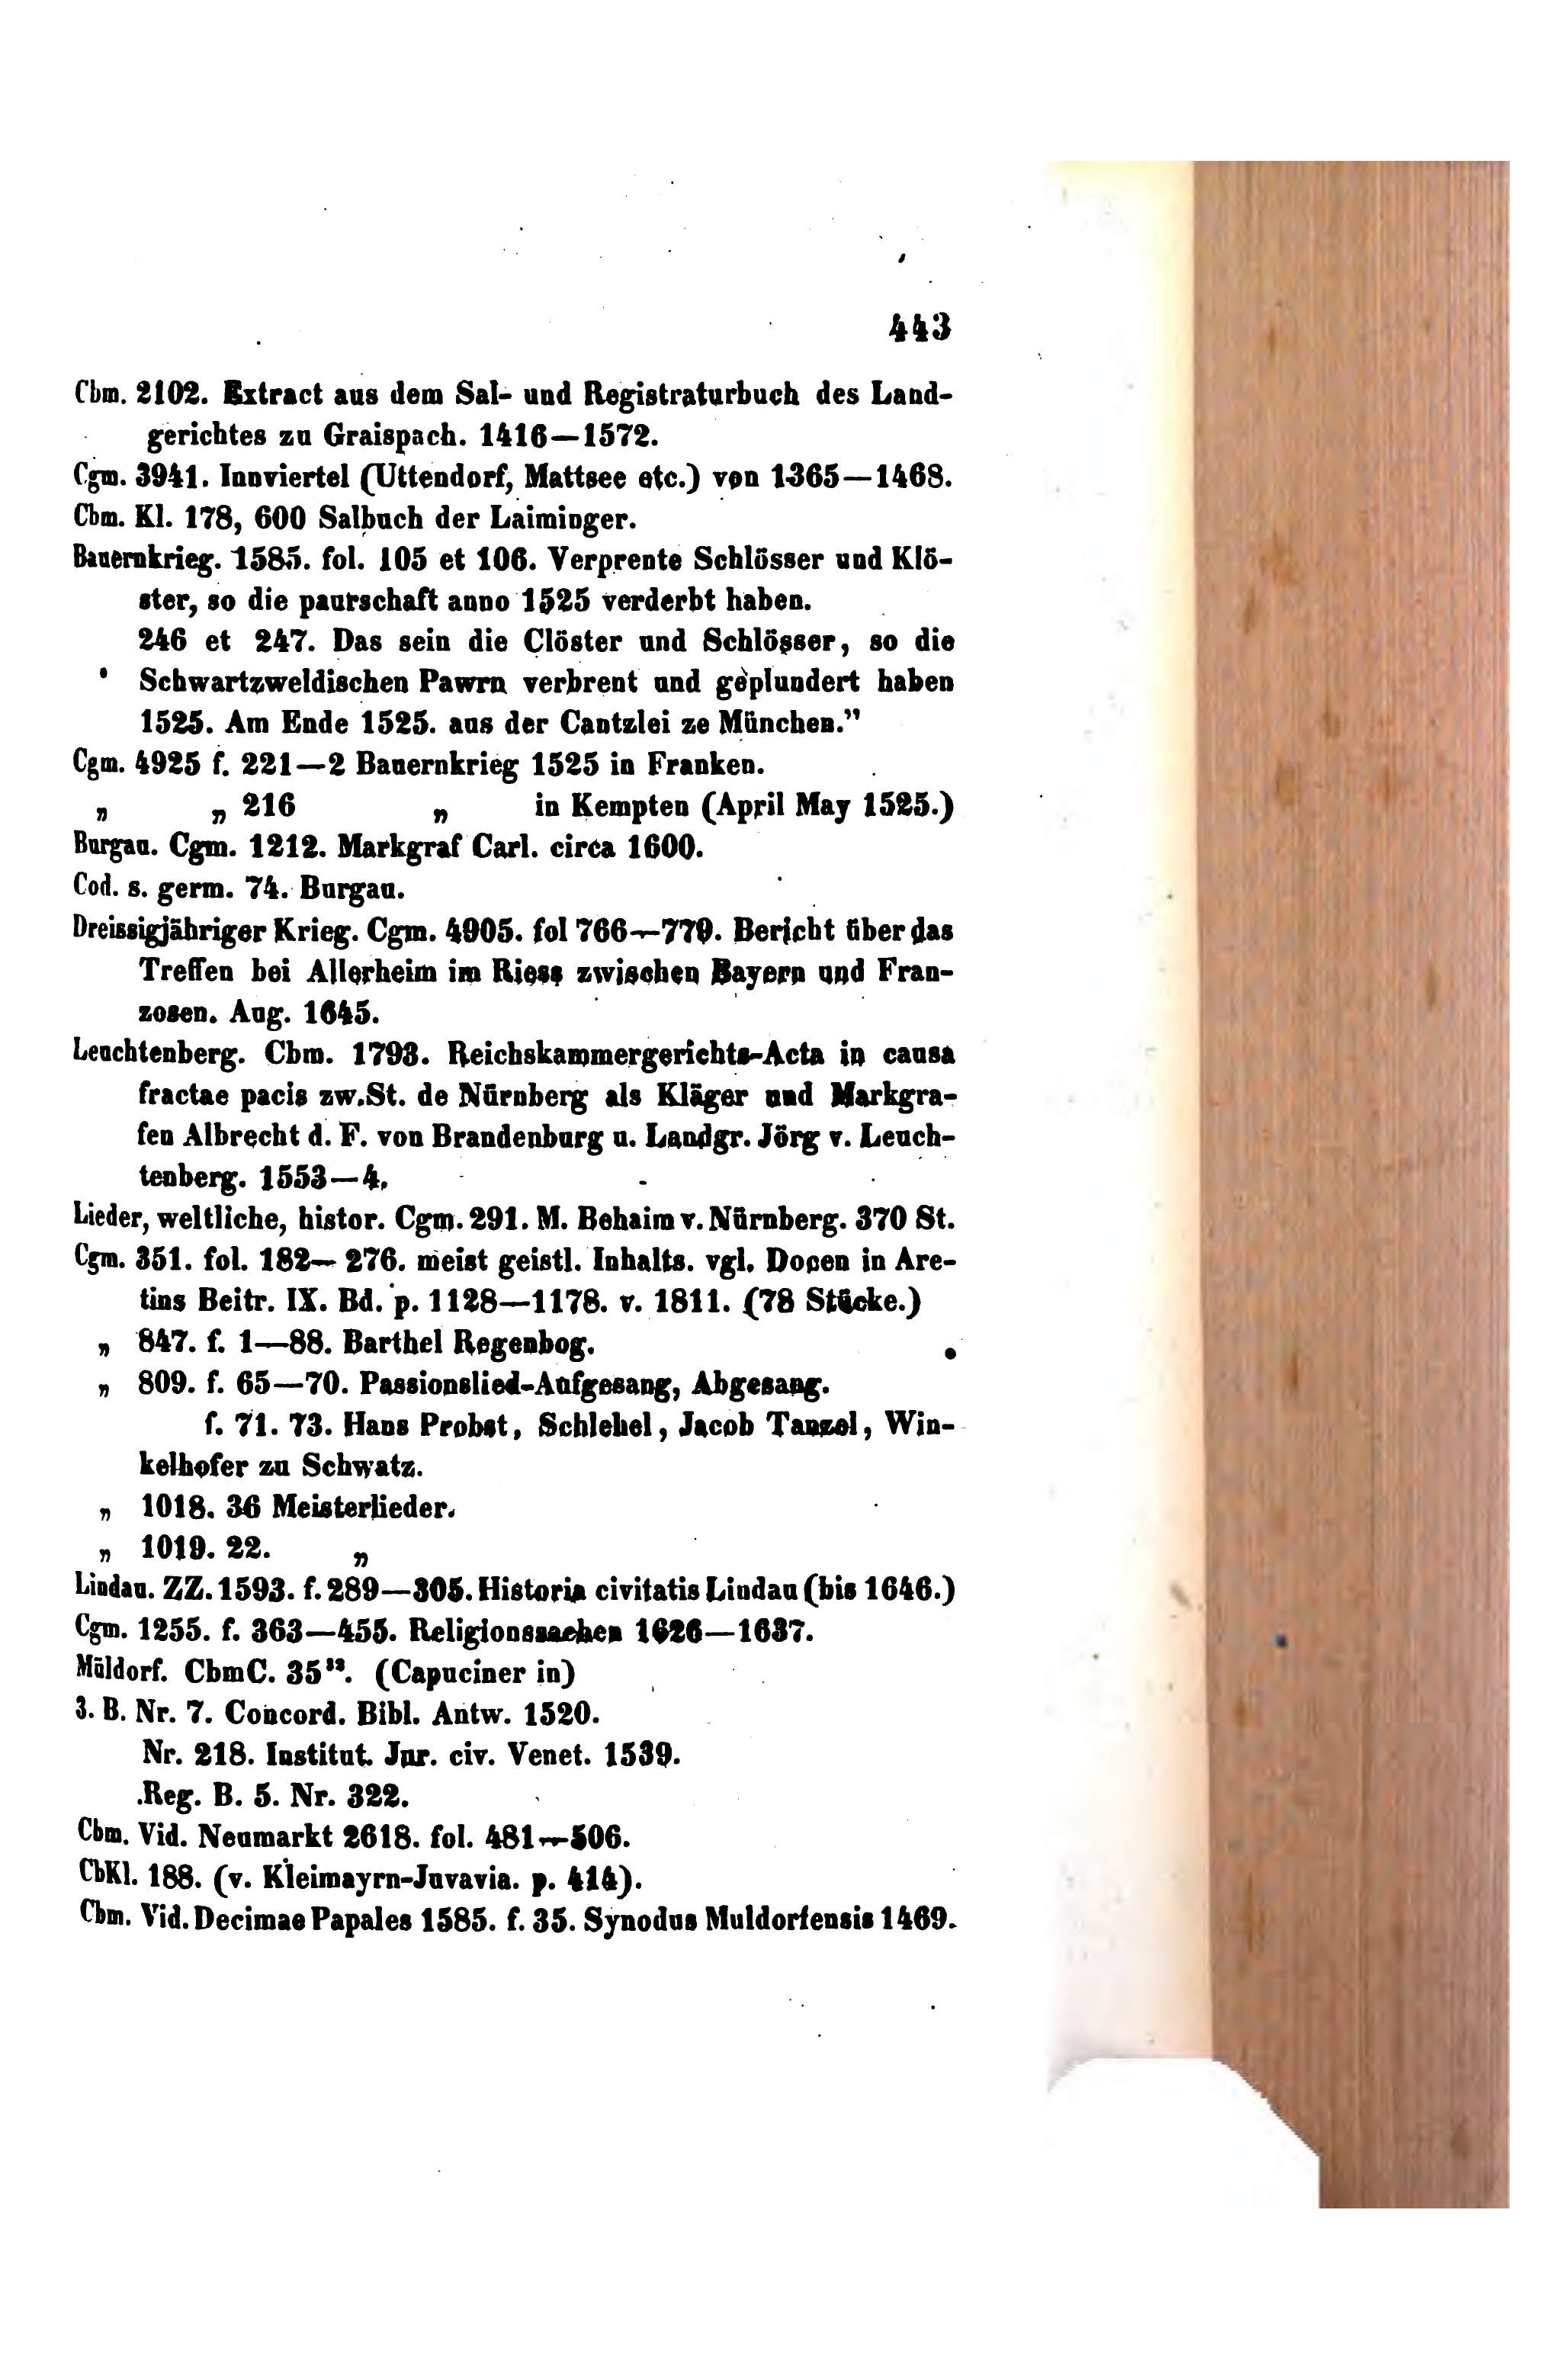 443
Cbm. 2102. Extract aus dem Sal- und Registraturbuch des Land-
gerichtes zu Graispach. 1416—1572.
Cgm. 3941. Innviertel (Uttendorf, Mattsee etc.) von 1365—1468.
Cbm. Kl. 178, 600 Salbuch der Laiminger.
Bauernkrieg. 1585. fol. 105 et 106. Verprente Schlösser und Klö-
ster, so die paurschaft anno 1525 verderbt haben.
246 et 247. Das sein die Clöster und Schlösser, so die
Schwartzweldischen Pawrn verbrent und geplundert haben
1525. Am Ende 1525. aus der Cantzlei ze München.”
Cgm. 4925 f. 221—2 Bauernkrieg 1525 in Franken.
„ „ 216 „ in Kempten (April May 1525.)
Burgau. Cgm. 1212. Markgraf Carl. circa 1600.
Cod. s. germ. 74. Burgau.
Dreissigjähriger Krieg. Cgm. 4905. fol 766—779. Bericht über das
Treffen bei Allerheim im Riess zwischen Bayern und Fran-
zosen. Aug. 1645.
Leuchtenberg. Cbm. 1793. Reichskammergerichts-Acta in causa
fractae pacis zw. St. de Nürnberg als Kläger und Markgra-
fen Albrecht d. F. von Brandenburg u. Landgr. Jörg v. Leuch-
tenberg. 1553—4.
Lieder, weltliche, histor. Cgm. 291. M. Behaim v. Nürnberg. 370 St.
Cgm. 351. fol. 182—276. meist geistl. Inhalts. vgl. Docen in Are-
tins Beitr. IX. Bd. p. 1128—1178. v. 1811. (78 Stücke.)
„ 847. f. 1—88. Barthel Regenbog.
„ 809. f. 65—70. Passionslied-Aufgesang, Abgesang.
f. 71. 73. Hans Probst, Schlehel, Jacob Tanzel, Win-
kelhofer zu Schwatz.
„ 1018. 36 Meisterlieder.
„ 1019. 22. „
Lindau. ZZ. 1593. f. 289—305. Historia civitatis Lindau (bis 1646.)
Cgm. 1255. f. 363—455. Religionssachen 1626—1637.
Müldorf. CbmC. 35. (Capuciner in)
3. B. Nr. 7. Concord. Bibl. Antw. 1520.
Nr. 218. Institut. Jur. civ. Venet. 1539.
Reg. B. 5. Nr. 322.
Cbm. Vid. Neumarkt 2618. fol. 481—506.
CbKl. 188. (v. Kleimayrn-Juvavia. p. 414).
Cbm. Vid. Decimae Papales 1585. f. 35. Synodus Muldorfensis 1469.